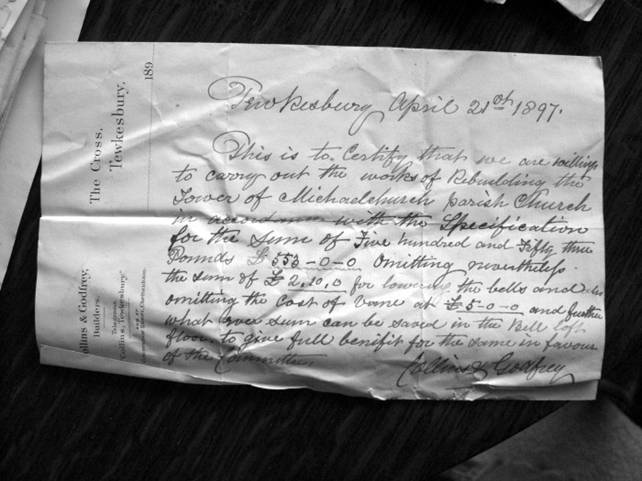 Tewkesbury April 21st 1897.
This is to Certify that we are willing
to carry out the works of Rebuilding the
Tower of Michaelchurch parish Church
in accordance with the Specification
for the sum of Five hundred and Fifty three
Pounds £ 553-0-0 Omitting nevertheless
the sum of £ 2.10.0 for lowering the bells and
omitting the Cost of Vane at £5-0-0 and further
what ever sum can be saved in the Bell loft
floor to give full benefit for the same in favour
of the Committee.
Collins & Godfrey
The Cross,
Tewkesbury,
189
ollins & Godfrey,
Builders.
Collins, Tewkesbury."